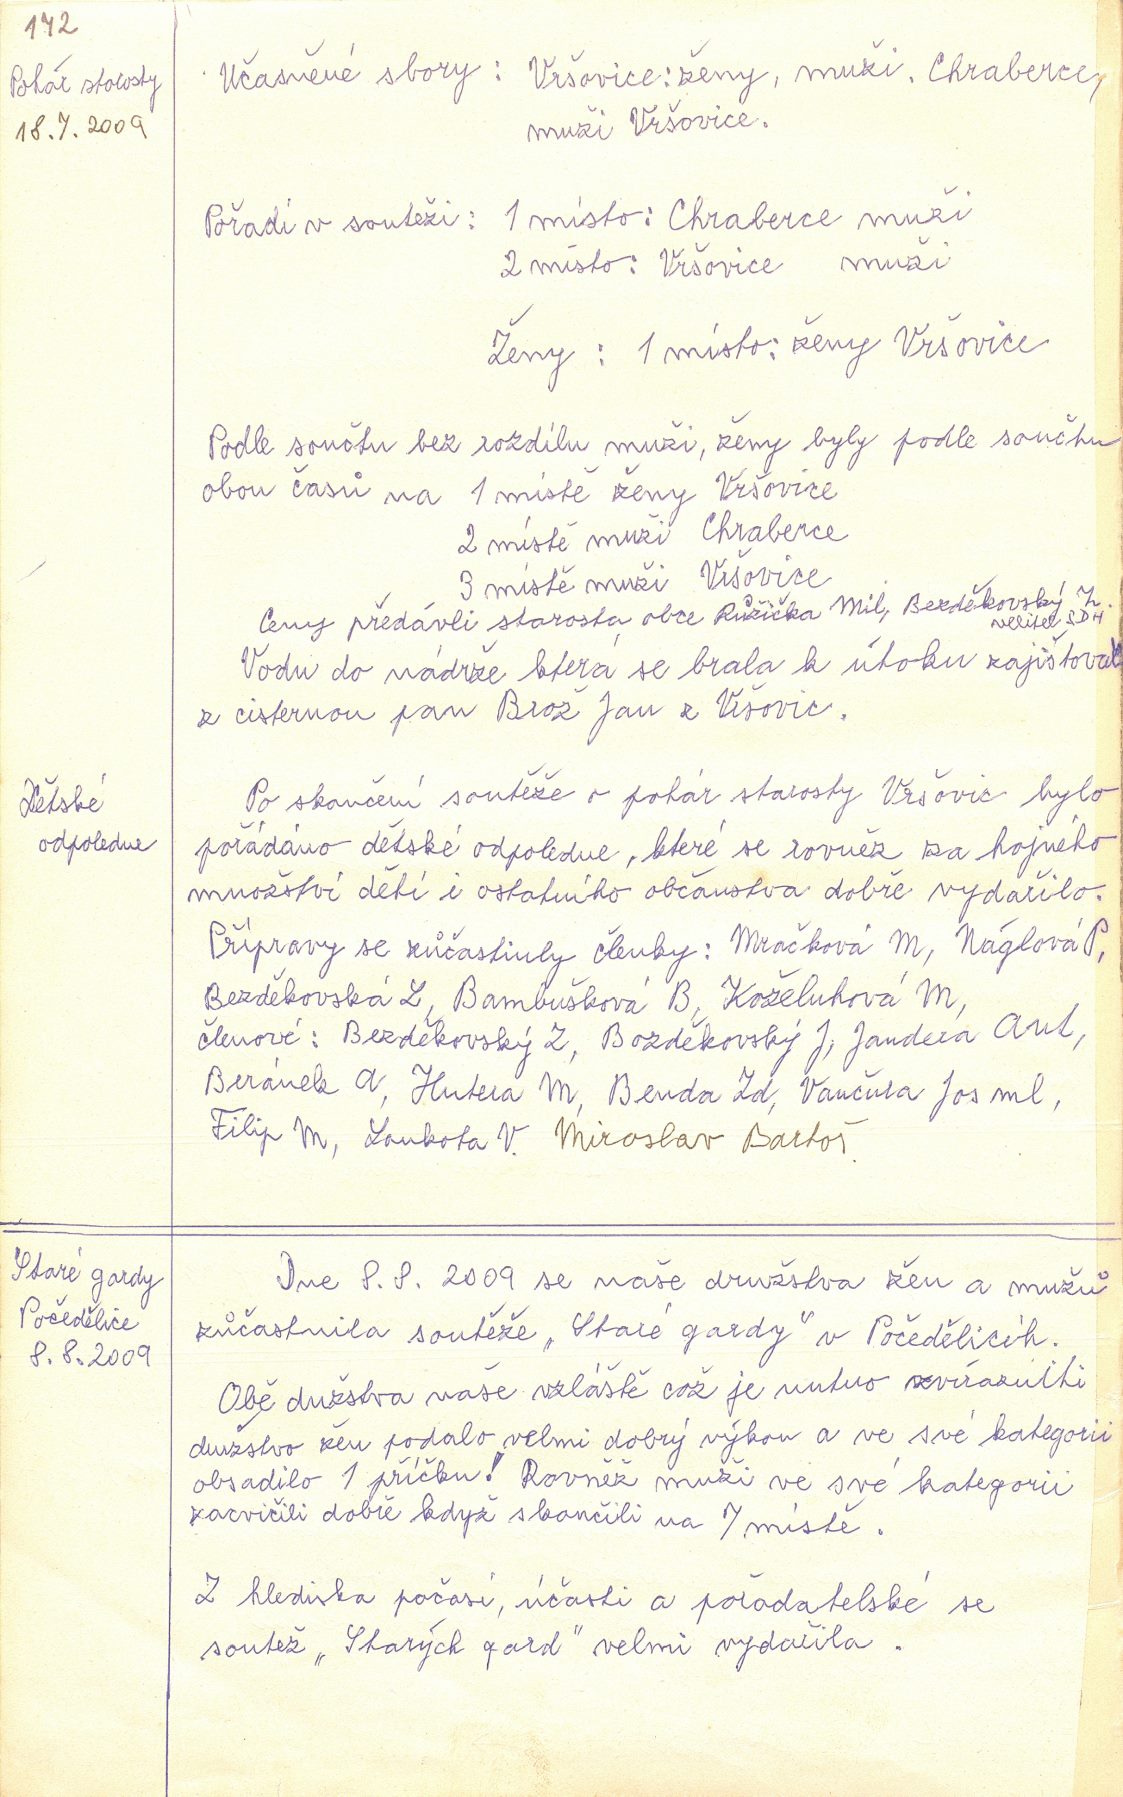 172
Pohár starosty
18.7.2009
Učasněné sbory : Vršovice: ženy, muži. Chraberce,
muži Vršovice.
Pořadí v soutěži : 1 místo: Chraberce muži
2 místo: Vršovice muži
Ženy : 1 místo: ženy Vršovice
Podle součtu bez rozdílu muži, ženy byly podle součtu
obou časů na 1 místě ženy Vršovice
2 místě muži Chraberce
3 místě muži Vršovice
Ceny předávli starosta obce Růžička Mil, Bezděkovský Z.
velitel SDH
Vodu do nádrže která se brala k útoku zajišťoval
z cisternou pan Brož Jan z Vršovic.
Dětské
odpoledne
Po skončení soutěže o pohár starosty Vršovic bylo
pořádáno dětské odpoledne, které se rovněž za hojného
množství dětí i ostatního občanstva dobře vydařilo.
Přípravy se zůčastinly členky: Mračková M, Náglová P,
Bezděkovská L, Bambušková B, Koželuhová M,
členové: Bezděkovský Z, Bozděkovský J, Jandera Ant,
Beránek A, Hutera M, Benda Zd, Vančura Jos ml,
Filip M, Loukota V. Miroslav Bartoš.
Staré gardy
Počedělice
8.8.2009
Dne 8.8. 2009 se naše družstva žen a mužů
zůčastnila soutěže „Staré gardy" v Počedělicíh.
Obě dužstva naše vzláště což je nutno zvírazníthi
družstvo žen podalo velmi dobrý výkon a ve své kategorii
obsadilo 1 příčku! Rovněž muži ve své kategorii
zacvičili dobře když skončili na 7 místě.
Z hlediska počasí, účasti a pořadatelské se
soutěž „Starých gard" velmi vydařila.